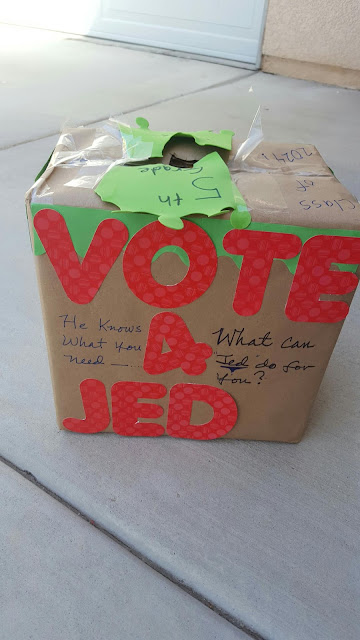 Class
of
2024!
5th
Grade
VOTE
4
JED
He Knows
What You
need —
What can
"Jed" do for
you?